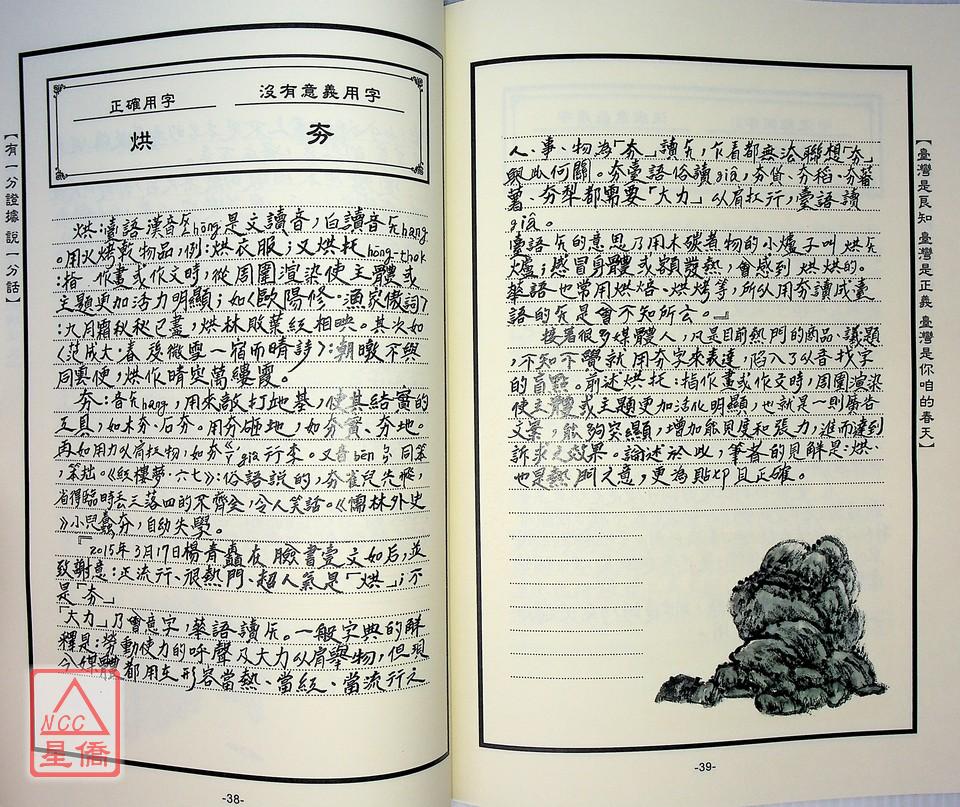 正確用字 沒有意義用字
烘 夯
【有一分證據 說一分話】
烘:臺語漢音ㄏㄨㄥhōng是文讀音,白讀音ㄏㄤhang
。用火烤乾物品,例:烘衣服;又烘托hōng-thok
:指 作畫或作文時,從周圍渲染使主體或
主題更加活力明顯;如《歐陽修·漁家傲詞》
:九月霜秋秋已盡,烘林敗葉紅相映。其次如
《范成大·春後微雪一宿而晴詩》:朝暾不與
同雲便,烘作晴空萬縷霞。
夯:音ㄏㄤhang,用來敲打地基,使其結實的
工具,如木夯、石夯。用夯砸地,如夯實、夯地。
再如用力以肩扛物,如夯gia行李。又音ben同笨
,笨拙。《紅樓夢·六七》:俗語說的,夯雀兒先飛,
省得臨時丟三落四的不齊全,令人笑話。《儒林外史
》小兒蠢夯,自幼失學。
『2015年3月17日楊青矗在臉書壹文如后,並
致謝意:正流行、很熱門、超人氣是「烘」;不
是「夯」
「大力」乃會意字,華語讀ㄏㄤ。一般字典的解
釋是:勞動使力的呼聲及大力以肩舉物,但現
今媒體都用在形容當熱、當紅、當流行之
NCC
星僑
-38-
人、事、物為「夯」讀ㄏㄤ,乍看都無法聯想「夯」
與此何關。夯臺語俗讀giâ,夯貨、夯稻、夯蕃
薯、夯犁都需要「大力」以肩扛行,臺語讀
giâ。
臺語ㄏㄤ的意思乃用木碳煮物的小爐子叫烘ㄏㄤ
爐;感冒身體或額發熱,會感到烘烘的。
華語也常用烘焙、烘烤等,所以用夯讀成臺
語的ㄏㄤ是會不知所云。』
接著很多媒體人,凡是目前熱門的商品、議題
,不知不覺就用夯字來表達,陷入了以音找字
的盲點。前述烘托:指作畫或作文時,周圍渲染
使主體或主題更加活化明顯,也就是一則廣告
文案,能夠突顯,增加能見度和張力,進而達到
訴求之效果。論述於此,筆者的見解是:烘、
也是熱門之意,更為貼切且正確。
【臺灣是良知 臺灣是正義 臺灣是你咱的春天】
-39-